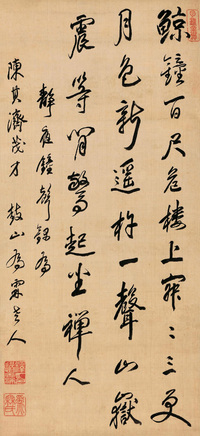 鯨鐘百尺危樓上寂〻三更
月色新遥杵一聲山嶽
震等閒驚起坐禪人
靜夜鐘聲録為
陳其濟茂才 鼓山為霖老人